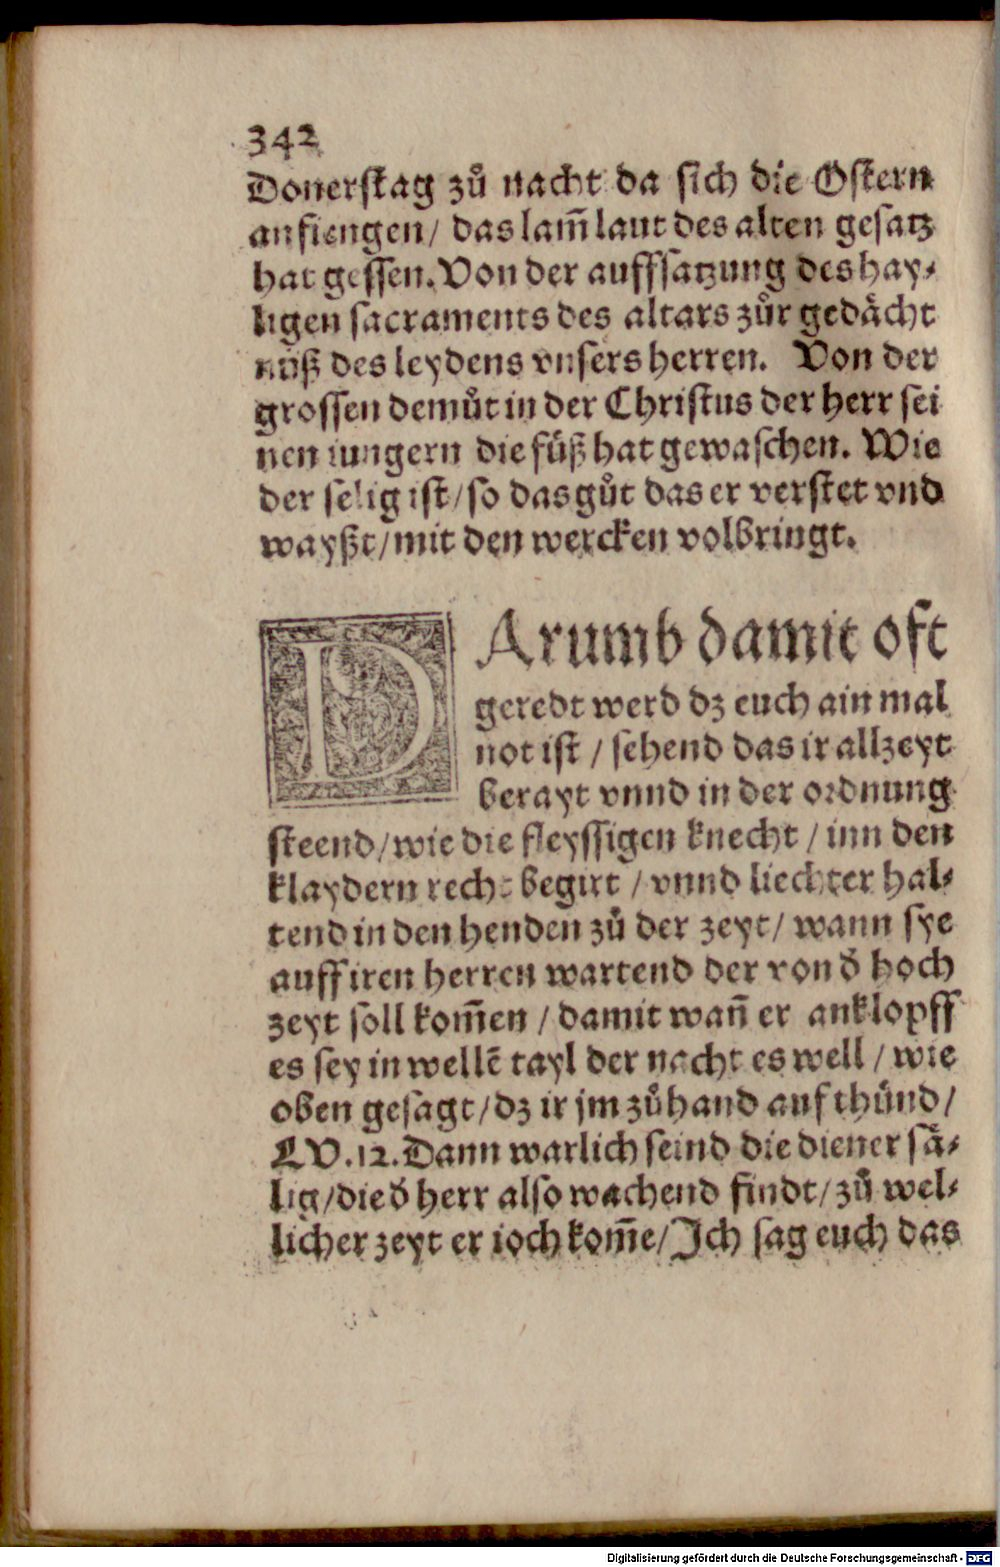 342
Donerstag zů nacht da sich die Ostern
anfiengen/ das lam̃ laut des alten gesatz
hat gessen. Von der auffsatzung des hay⸗
ligen sacraments des altars zůr gedächt
nüß des leydens vnsers herren. Von der
grossen demůt in der Christus der herr sei
nen iungern die füß hat gewaschen. Wie
der selig ist/so das gůt das er verstet vnd
wayßt/mit den wercken volbringt.
DArumb damit oft
geredt werd dz euch ain mal
not ist / sehend das ir allzeyt
berayt vnnd in der ordnung
steend/wie die fleyssigen knecht / inn den
klaydern recht begirt / vnnd liechter hal⸗
tend in den henden zů der zeyt/ wann sye
auff iren herren wartend der von d̕ hoch
zeyt soll kom̃en / damit wañ er anklopff
es sey in wellẽ tayl der nacht es well / wie
oben gesagt/dz ir jm zůhand auf thünd/
LV.12. Dann warlich seind die diener sä⸗
lig/die d̕ herr also wachend findt/ zů wel⸗
licher zeyt er ioch kom̃e/Ich sag euch das
Digitalisierung gefördert durch die Deutsche Forschungsgemeinschaft - DFG